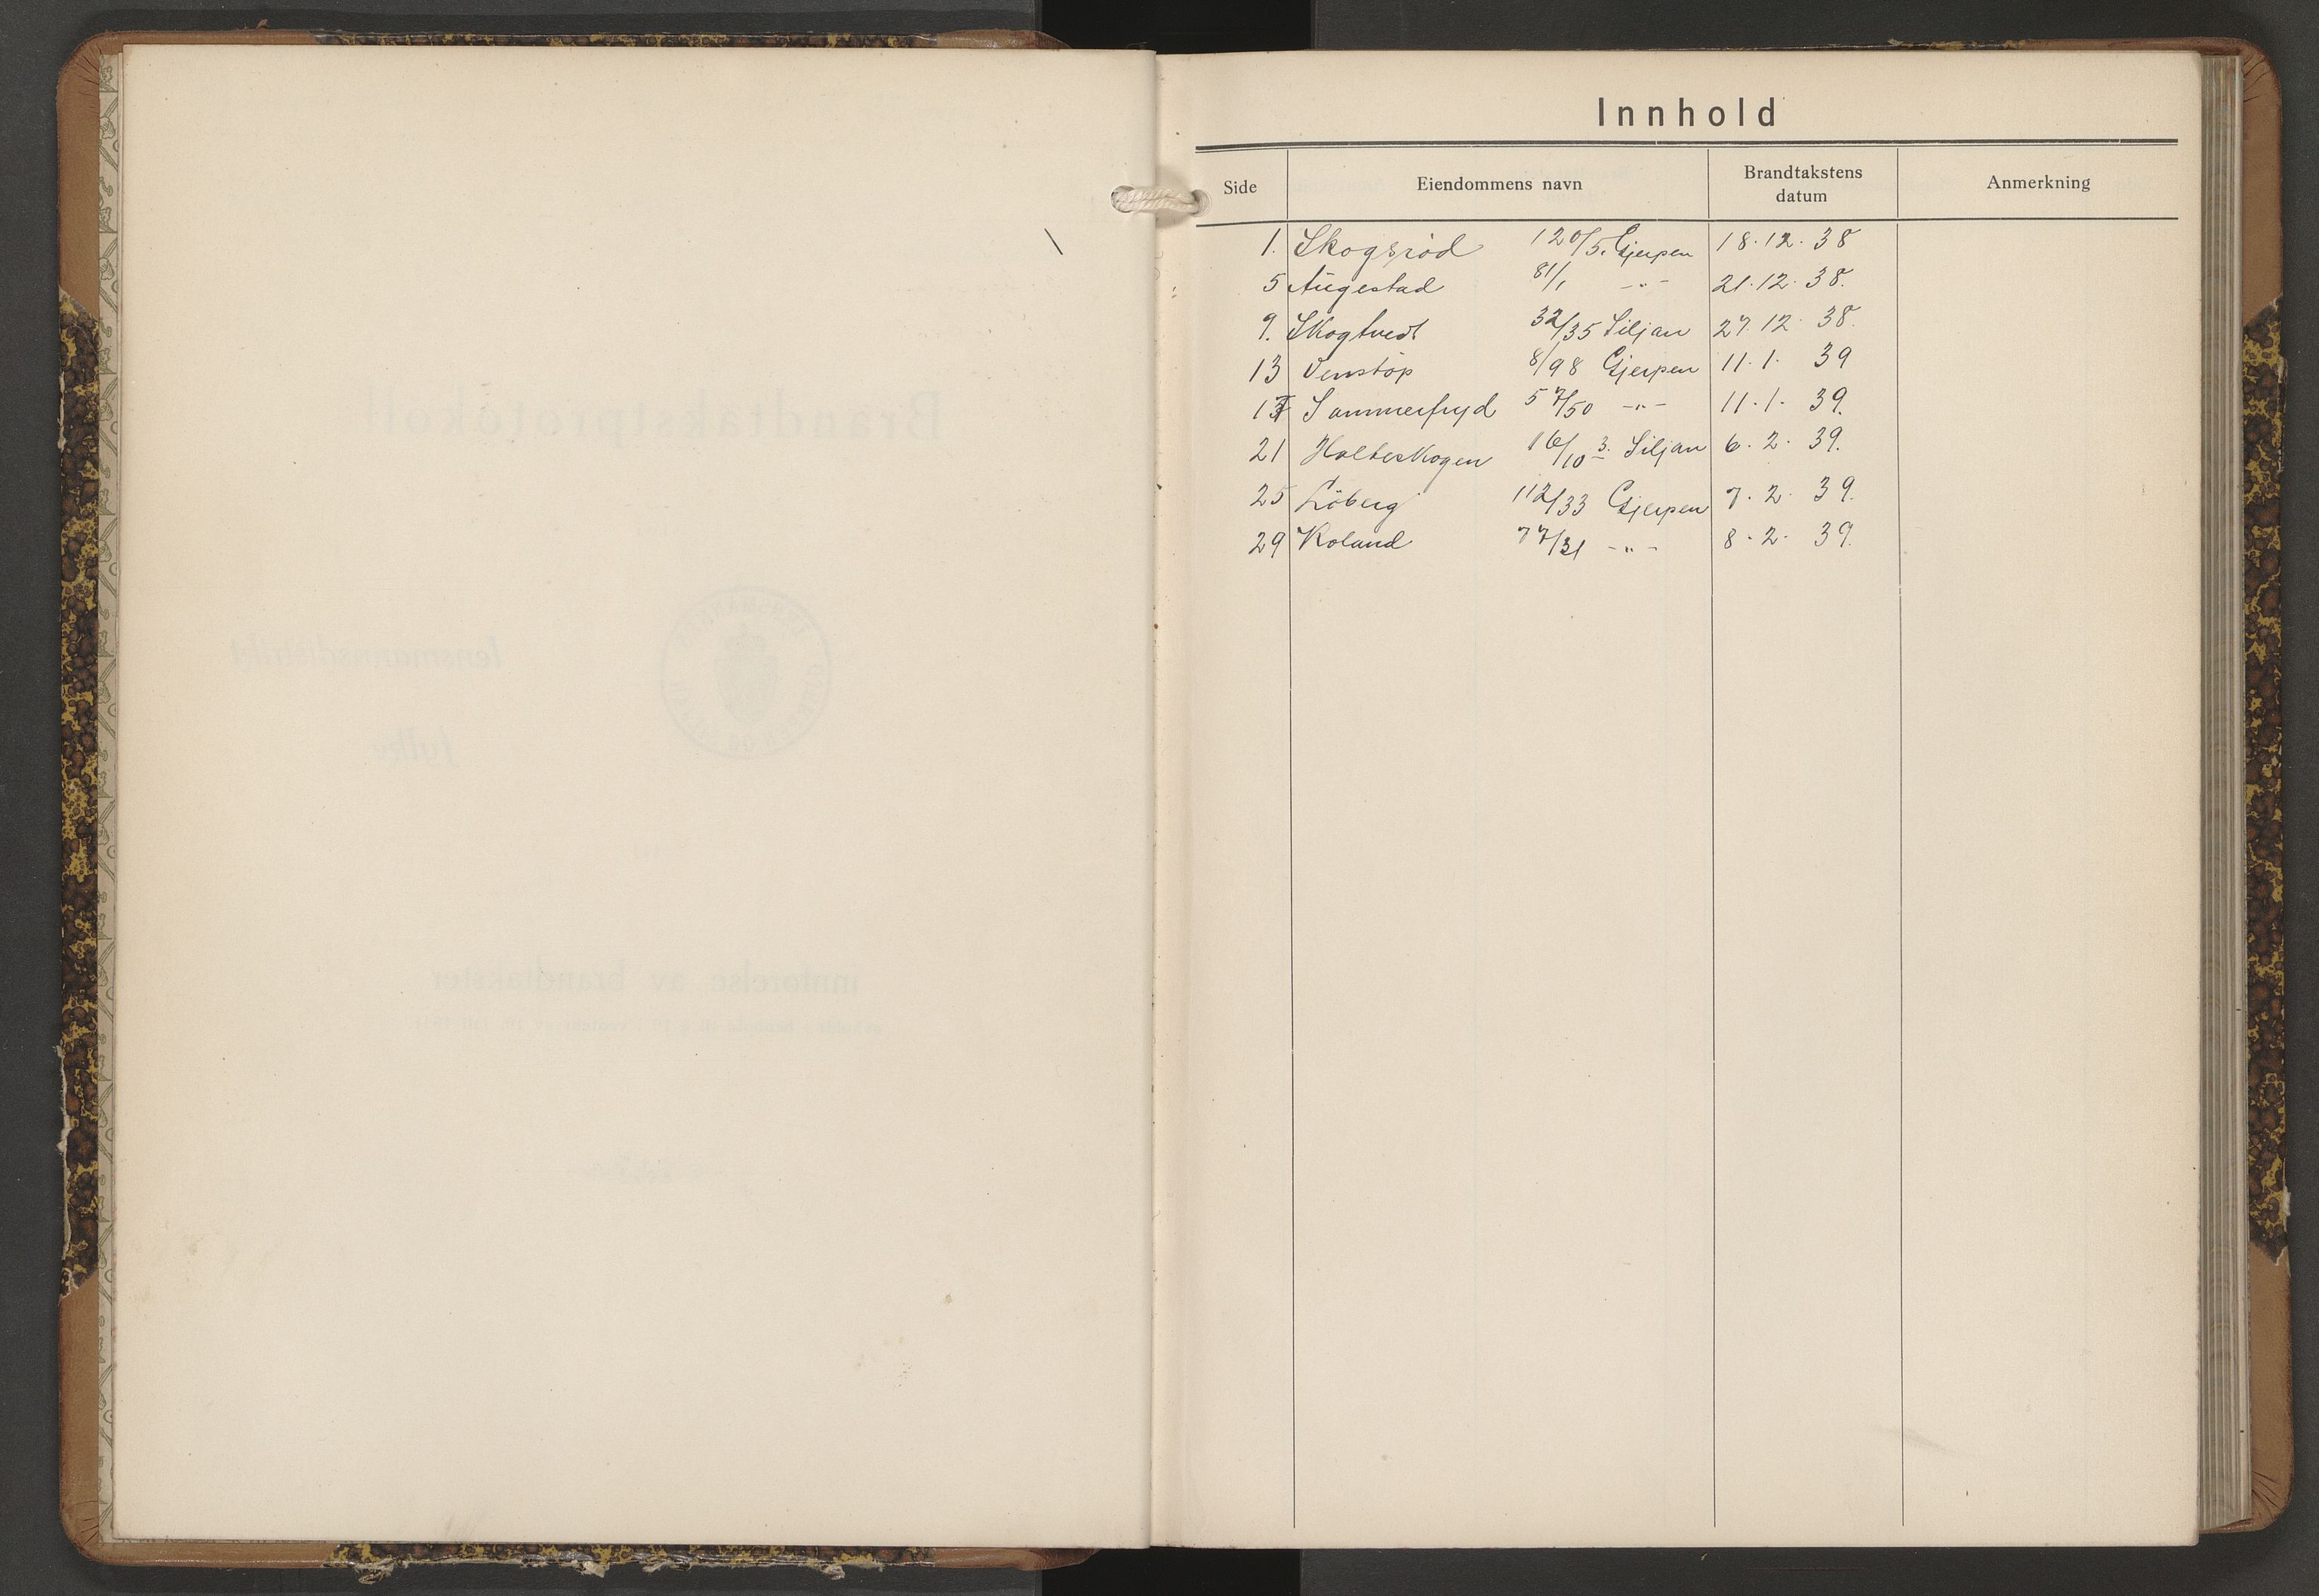 Innhold
Side Eiendommens navn Brandtakstens datum Anmerkning
1. Skogsröd 120/5. Gjerpen 18.12.38
5 Augestad 81/1 -"- 21.12.38.
9. Skogtvedt 32/35 Siljan 27.12.38.
13 Venstöp 8/98 Gjerpen 11.1.39
17 Sommerfryd 57/50 -"- 11.1.39.
21 Holteskogen 16/10 3. Siljan 6.2.39.
25 Löberg 112/33 Gjerpen 7.2.39.
29 Roland 77/31 -"- 8.2.39.